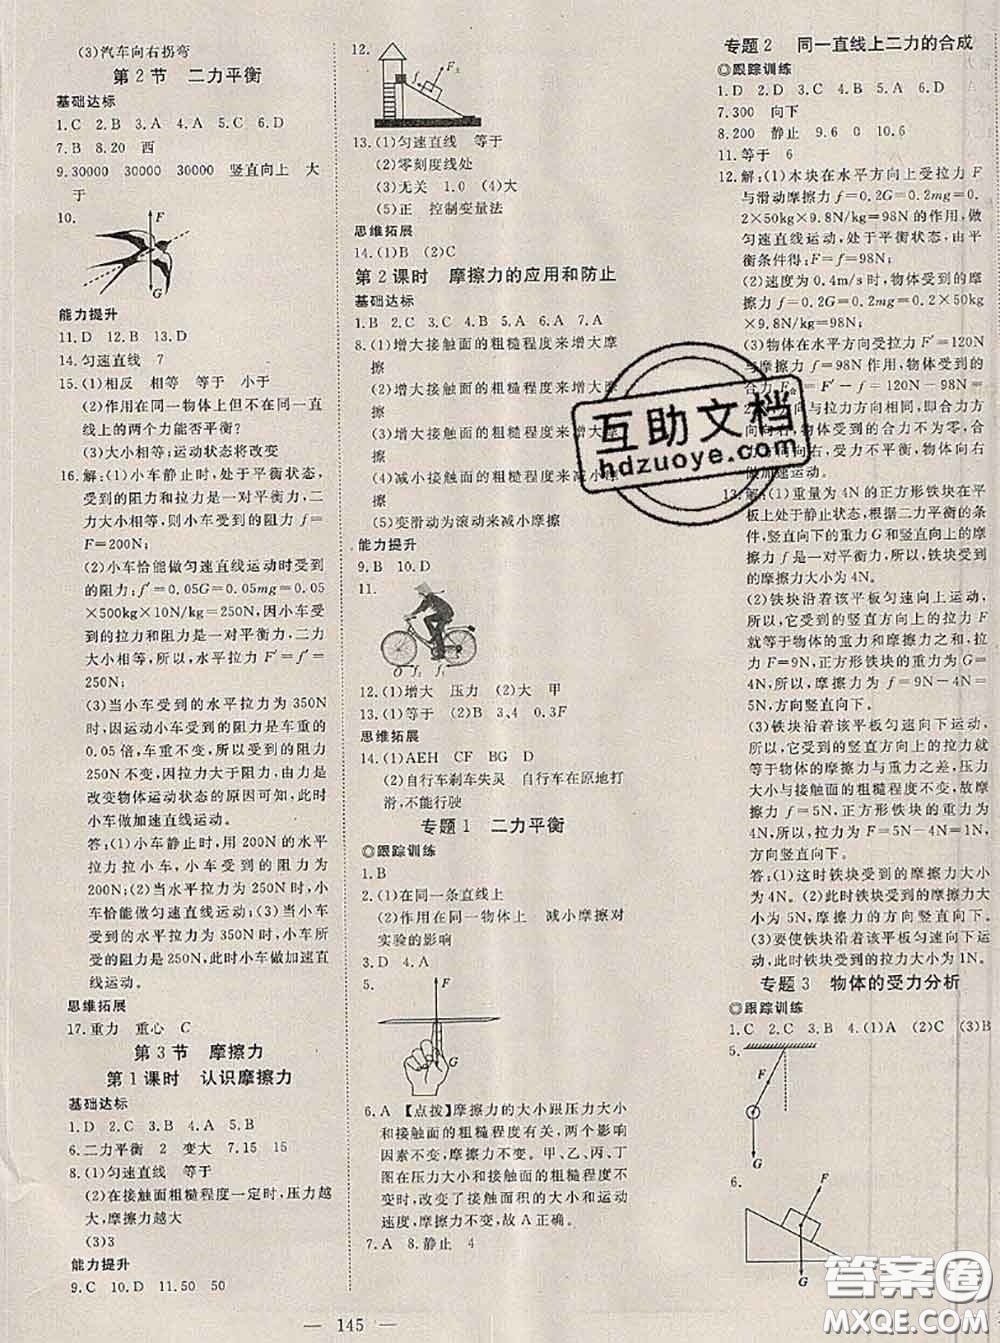 (3)汽车向右拐弯
第2节 二力平衡
基础达标
1.C 2.B 3.A 4.A 5.C 6.D
7.B 8.20 西
9.30000 30000 30000 竖直向上 大
于
10.
F
G
能力提升
11.D 12.B 13.D
14.匀速直线 7
15.(1)相反 相等 等于 小于
(2)作用在同一物体上但不在同一直
线上的两个力能否平衡?
(3)大小相等;运动状态将改变
16.解:(1)小车静止时,处于平衡状态,
受到的阻力和拉力是一对平衡力,二
力大小相等,则小车受到的阻力f=
F=200N;
(2)小车恰能做匀速直线运动时受
到的阻力:f′=0.05G=0.05mg=0.05
×500kg×10N/kg=250N,因小车受
到的拉力和阻力是一对平衡力,二力
大小相等,所以,水平拉力F′=f′=
250N;
(3)当小车受到的水平拉力为350N
时,因运动小车受到的阻力是车重的
0.05倍,车重不变,所以受到的阻力
250N不变,因拉力大于阻力,力是
改变物体运动状态的原因可知,此时
小车做加速直线运动。
答:(1)小车静止时,用200N的水平
拉力拉小车,小车受到的阻力是
200N;(2)当水平拉力为250N时,小
车恰能做匀速直线运动;(3)当小车
受到的水平拉力为350N时,小车所
受的阻力是250N,此时小车做加速直
线运动。
思维拓展
17.重力 重心 C
第3节 摩擦力
第1课时 认识摩擦力
基础达标
1.D 2.C 3.D 4.A 5.B
6.二力平衡 2 变大 7.15 15
8.(1)匀速直线 等于
(2)在接触面粗糙程度一定时,压力越
大,摩擦力越大
(3)3
能力提升
9.C 10.D 11.50 50
12.
F支
13.(1)匀速直线 等于
(2)零刻度线处
(3)无关 1.0 (4)大
(5)正 控制变量法
思维拓展
14.(1)B (2)C
第2课时 摩擦力的应用和防止
基础达标
1.B 2.C 3.C 4.D 5.A 6.A 7.A
8.(1)增大接触面的粗糙程度来增大摩
擦
(2)增大接触面的粗糙程度来增大摩
擦
(3)增大接触面的粗糙程度来增大摩
擦
(4)减小接触面的粗糙程度来减小摩
擦
(5)变滑动为滚动来减小摩擦
能力提升
9.B 10.D
11.
O f₂ f₁
12.(1)增大 压力 (2)大 甲
13.(1)等于 (2)B 3.4 0.3F
思维拓展
14.(1)AEH CF BG D
(2)自行车刹车失灵 自行车在原地打
滑,不能行驶
专题1 二力平衡
◎跟踪训练
1.B
2.(1)在同一条直线上
(2)作用在同一物体上 减小摩擦对
实验的影响
3.D 4.A
5.
F
G
6.A 【点拨】摩擦力的大小跟压力大小
和接触面的粗糙程度有关,两个影响
因素不变,摩擦力不变。甲、乙、丙、丁
图在压力大小和接触面的粗糙程度不
变时,改变了接触面积的大小和运动
速度,摩擦力不变,故A正确。
7.A 8.静止 4
专题2 同一直线上二力的合成
◎跟踪训练
1.D 2.D 3.C 4.C 5.A 6.D
7.300 向下
8.200 静止 9.6 0 10.6
11.等于 6
12.解:(1)木块在水平方向上受拉力F
与滑动摩擦力f=0.2G=0.2mg=0.
2×50kg×9.8N/kg=98N的作用,做
匀速直线运动,处于平衡状态,由平
衡条件得:F=f=98N;
(2)速度为0.4m/s时,物体受到的摩
擦力f=0.2G=0.2mg=0.2×50kg
×9.8N/kg=98N;
(3)物体在水平方向受拉力F′=120N
与摩擦力f=98N作用,物体受到的
合力F合=F′-f=120N-98N=
22N,方向与拉力方向相同,即合力方
向向右,物体受到的合力不为零,合力
方向向右,受力不平衡,物体向右
做加速运动。
13.解:(1)重量为4N的正方形铁块在平
板上处于静止状态,根据二力平衡的条
件,竖直向下的重力G和竖直向上的摩
擦力f是一对平衡力,所以,铁块受到
的摩擦力大小为4N。
(2)铁块沿着该平板匀速向上运动,
所以,它受到的竖直方向向上的拉力F
就等于物体的重力和摩擦力之和,拉
力F=9N,正方形铁块的重力为G=
4N,所以,它受到的摩擦力f=9N-4N
=5N,方向竖直向下。
(3)铁块沿着该平板匀速向下运动,
所以,它受到的竖直方向上的摩擦力就
等于物体的重力与拉力之差,压力大小
和接触面的粗糙程度不变,故摩擦力不
变,f=5N,正方形铁块的重力为
4N,所以,拉力为F=5N-4N=1N,
方向竖直向下。
答:(1)这时铁块受到的摩擦力大小
为4N;(2)此时铁块受到的摩擦力大小
为5N,摩擦力的方向竖直向下;
(3)要使铁块沿着该平板匀速向下运
动,铁块受到的拉力大小为1N。
专题3 物体的受力分析
◎跟踪训练
1.C 2.C 3.C 4.(1)A (2)C (3)B
5.
F
G
6.
F
G
— 145 —
互助文档
hdzuoye.com
答案圈
MXQE.COM